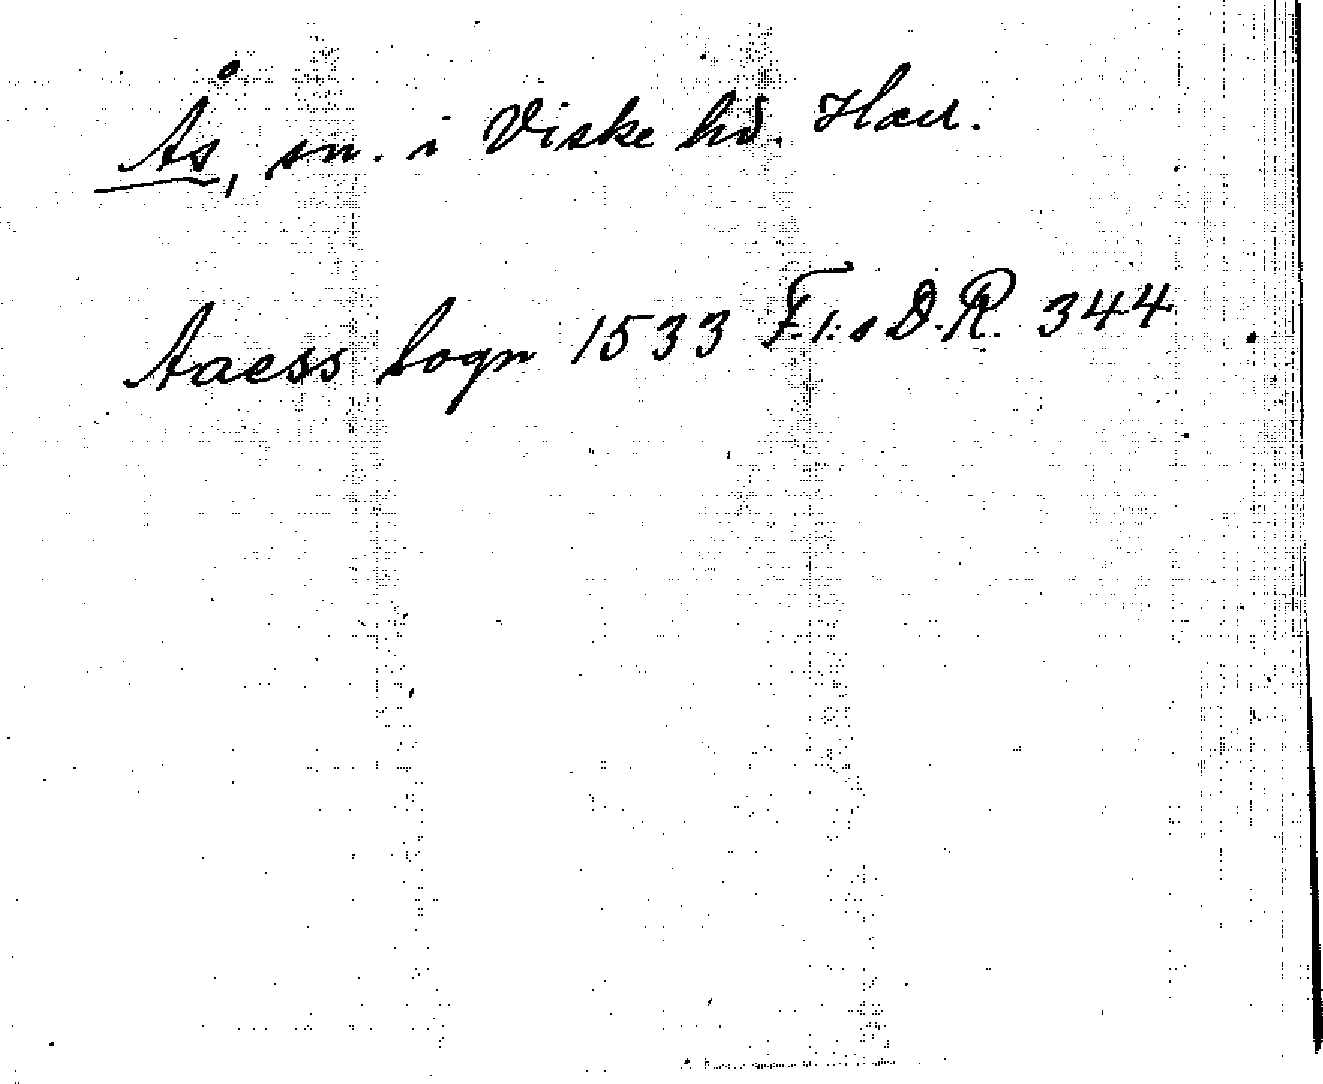 Ås, sn. i Viske hd. Hall.
Aaess sogn 1533 F.I:s D.R. 344